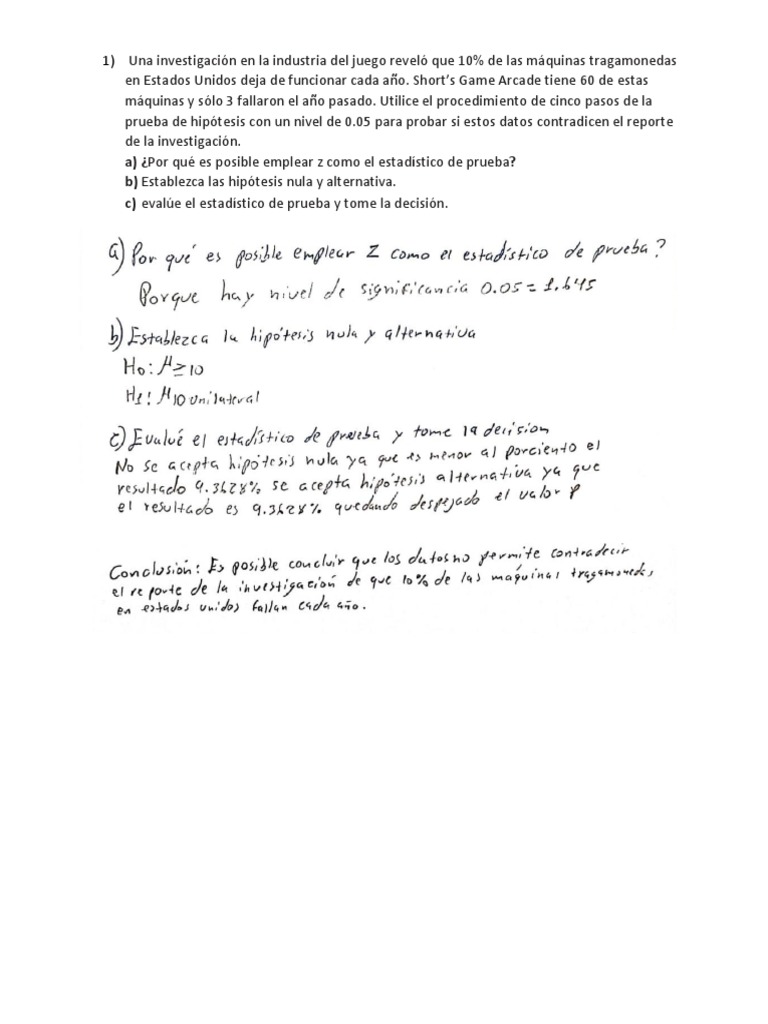 1) Una investigación en la industria del juego reveló que 10% de las máquinas tragamonedas
en Estados Unidos deja de funcionar cada año. Short's Game Arcade tiene 60 de estas
máquinas y sólo 3 fallaron el año pasado. Utilice el procedimiento de cinco pasos de la
prueba de hipótesis con un nivel de 0.05 para probar si estos datos contradicen el reporte
de la investigación.
a) ¿Por qué es posible emplear z como el estadístico de prueba?
b) Establezca las hipótesis nula y alternativa.
c) evalúe el estadístico de prueba y tome la decisión.
a) Por qué es posible emplear Z como el estadístico de prueba?
Porque hay nivel de significancia 0.05 = 1.645
b) Establezca la hipótesis nula y alternativa
Ho: μ ≥ 10
H1: μ 10 unilateral
c) Evalué el estadístico de prueba y tome la decision
No se acepta hipótesis nula ya que es menor al porciento el
resultado 9.3628% se acepta hipótesis alternativa ya que
el resultado es 9.3628% quedando despejado el valor P
Conclusión: Es posible concluir que los datos no permite contradecir
el reporte de la investigación de que 10% de las maquinas tragamonedas
en estados unidos fallan cada año.